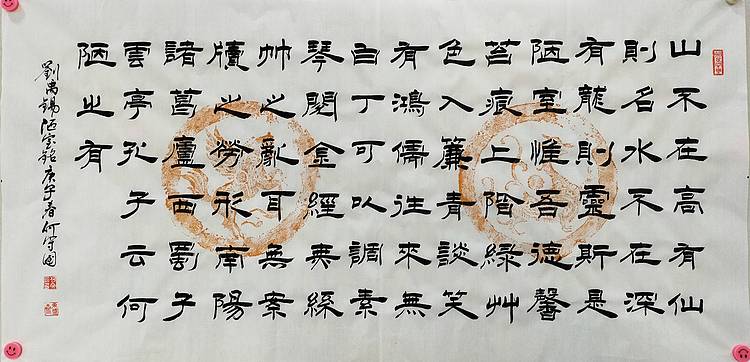 山不在高有仙
則名水不在深
有龍則靈斯是
陋室惟吾德馨
苔痕上階綠艸
色入簾青談笑
有鴻儒往來無
白丁可以調素
琴閱金經無絲
竹之亂耳無案
牘之勞形南陽
諸葛廬西蜀子
雲亭孔子云何
陋之有
劉禹錫陋室銘庚春何國